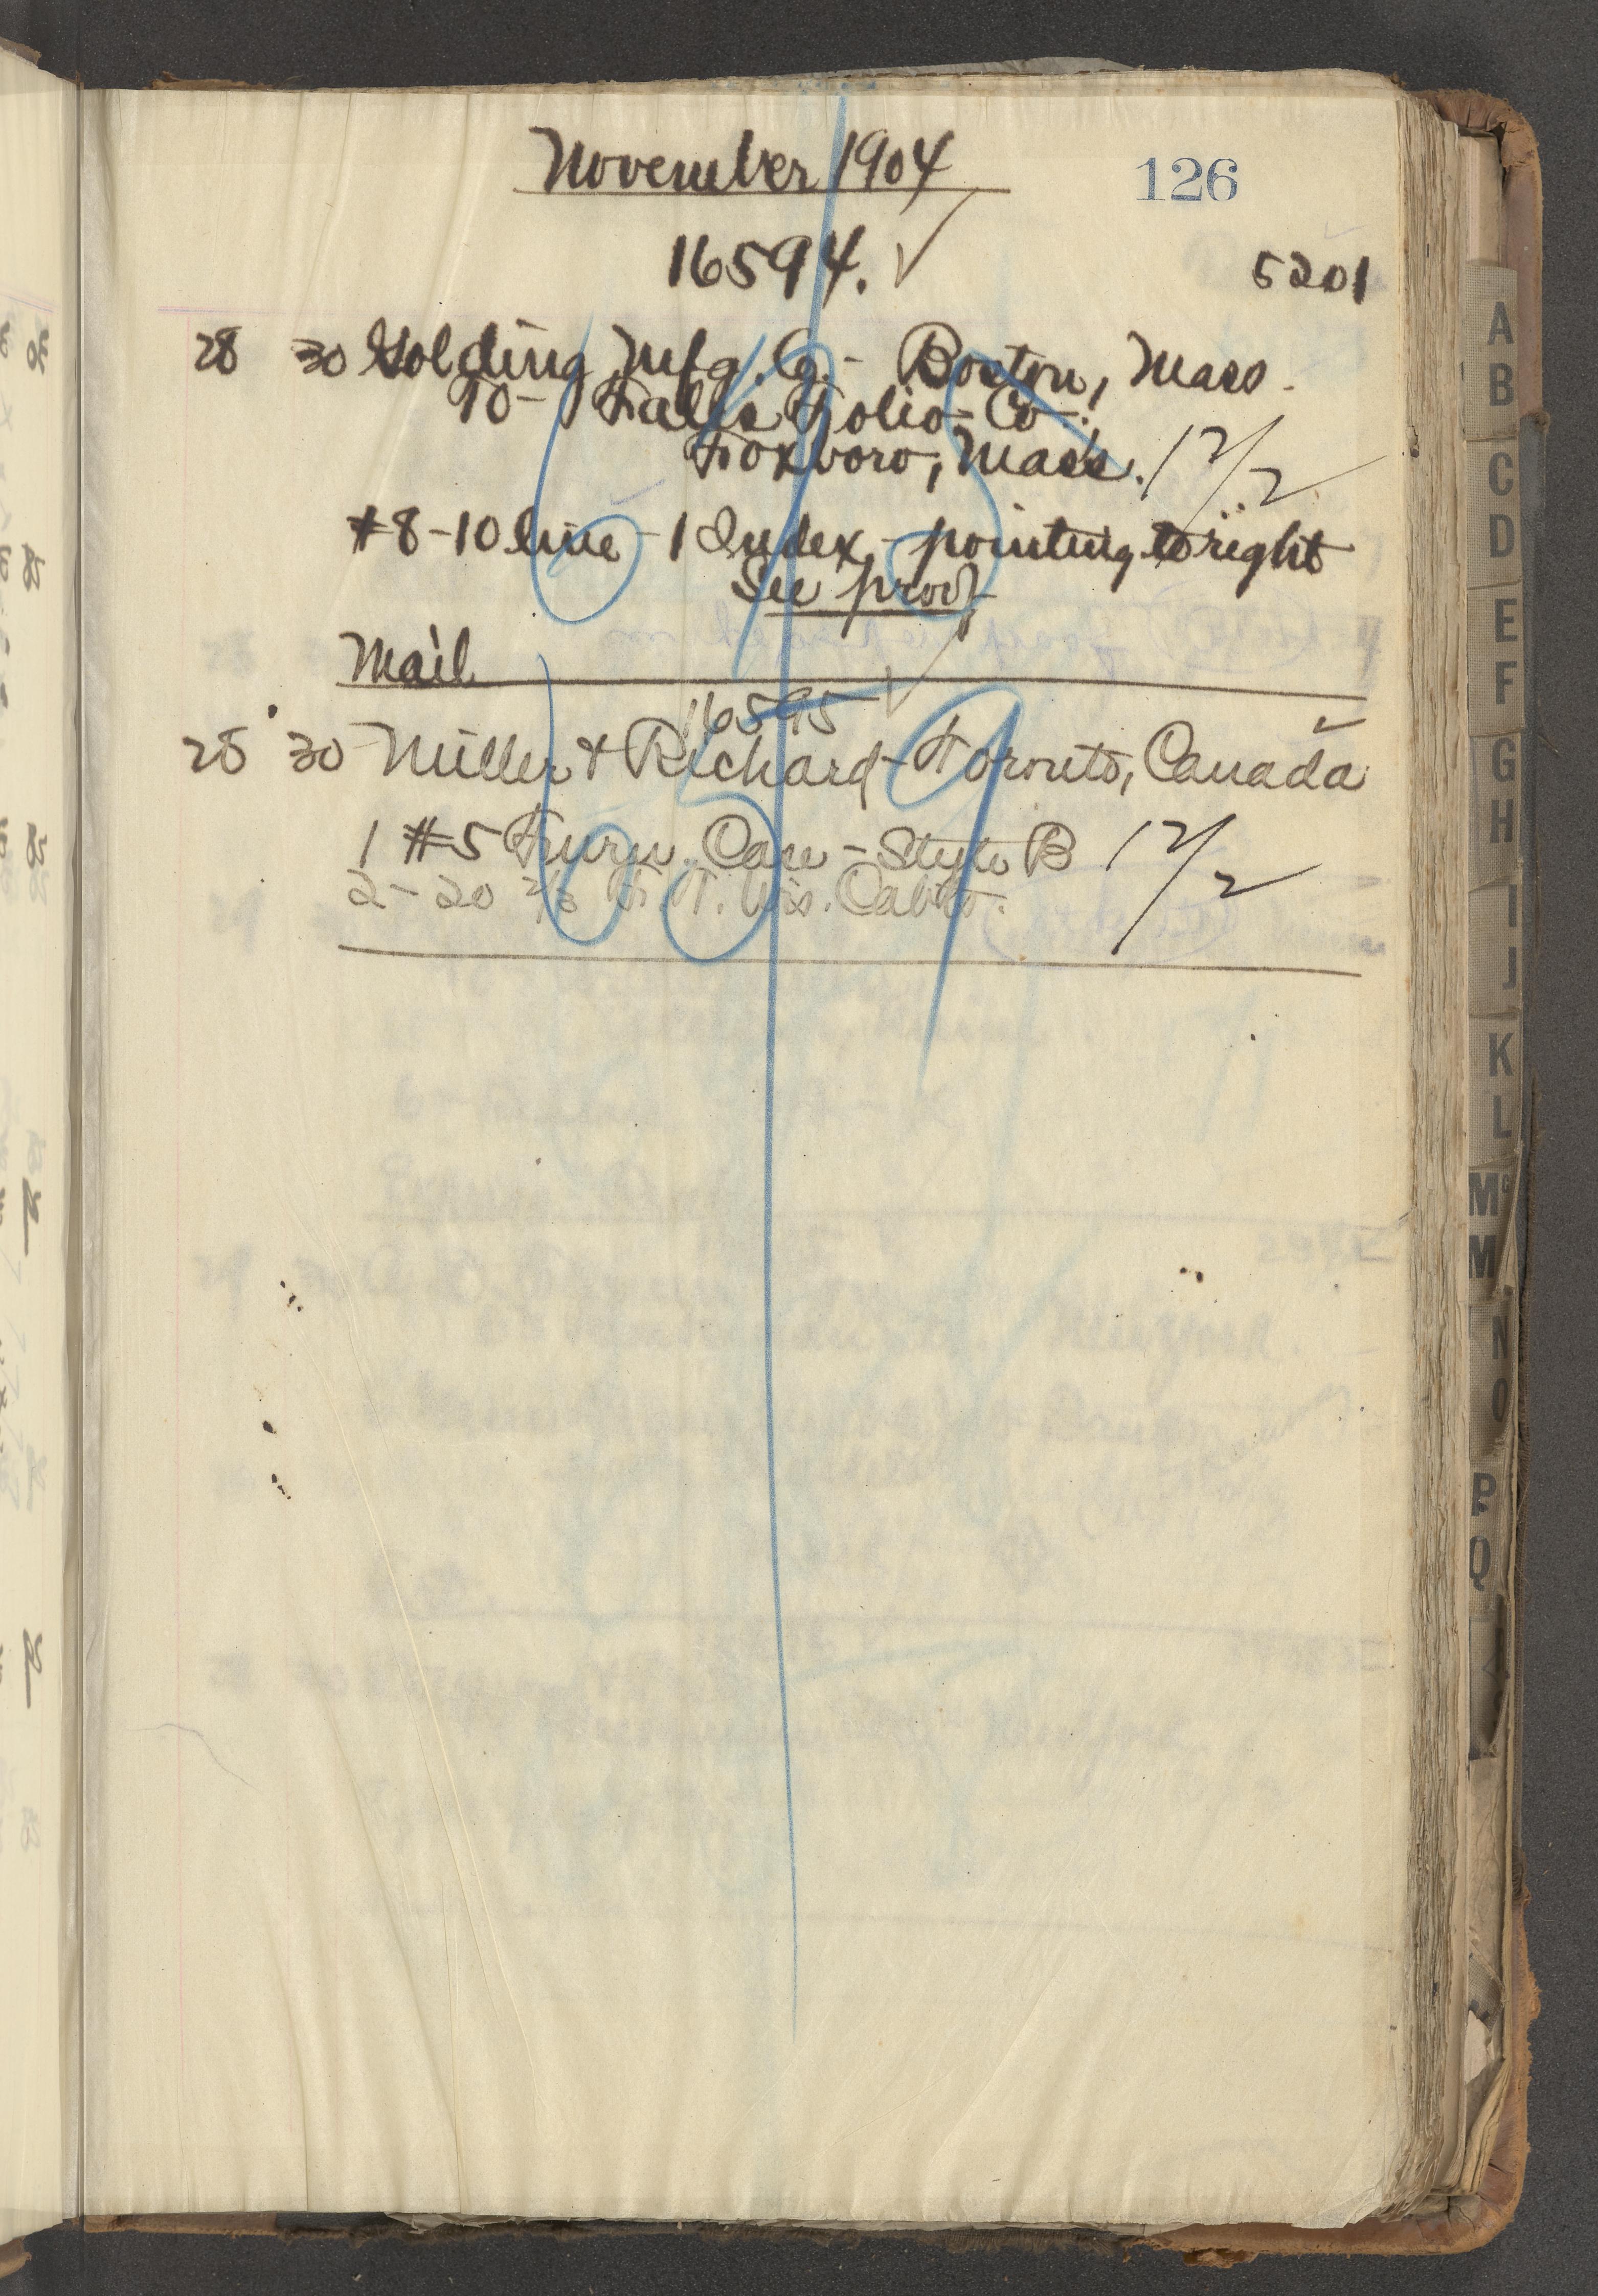 November 1904
126
16594. ✓
5201
28 30 Golding Mfg. Co. - Boston, Mass.
To - Falls Folio Co.
Foxboro, Mass. 12/2
#8-10 line - 1 Index - pointing to right
See proof
Mail
16595 ✓
28 30 Miller & Richard - Toronto, Canada
1 #5 Furn. Case - Style B 12/2
2-20 2/3 Wis. Cabt.
A
B
C
D
E
F
G
H
I
J
K
L
M
M
N
O
P
Q